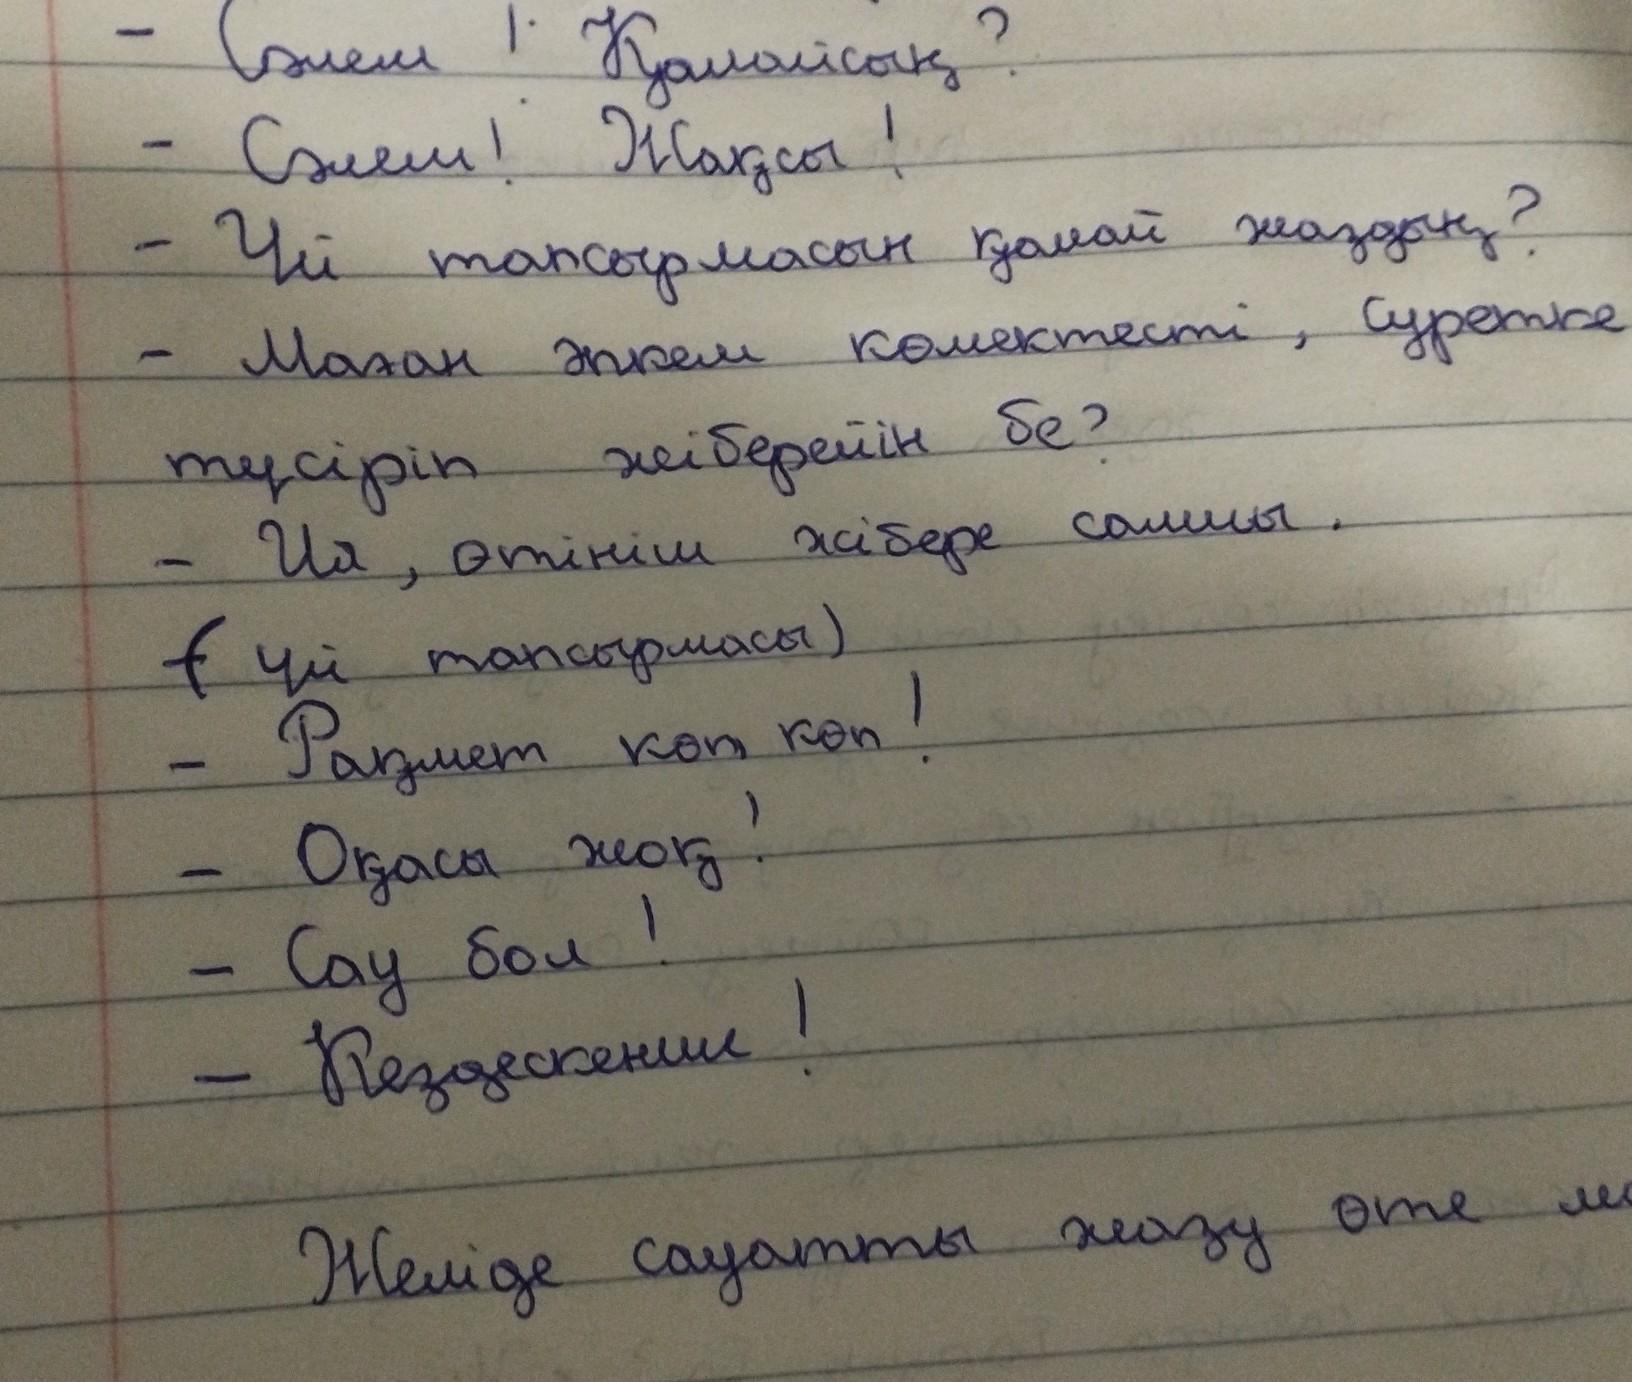 - Сәлем! Қалайсың?
- Сәлем! Жақсы!
- Үй тапсырмасын қалай жаздың?
- Маған әпкем көмектесті, суретке
түсіріп жіберейін бе?
- Ия, өтініш жібере салшы.
(үй тапсырмасы)
- Рақмет көп көп!
- Оқасы жоқ!
- Сау бол!
- Кездескенше!
Желіде сауатты жазу өте